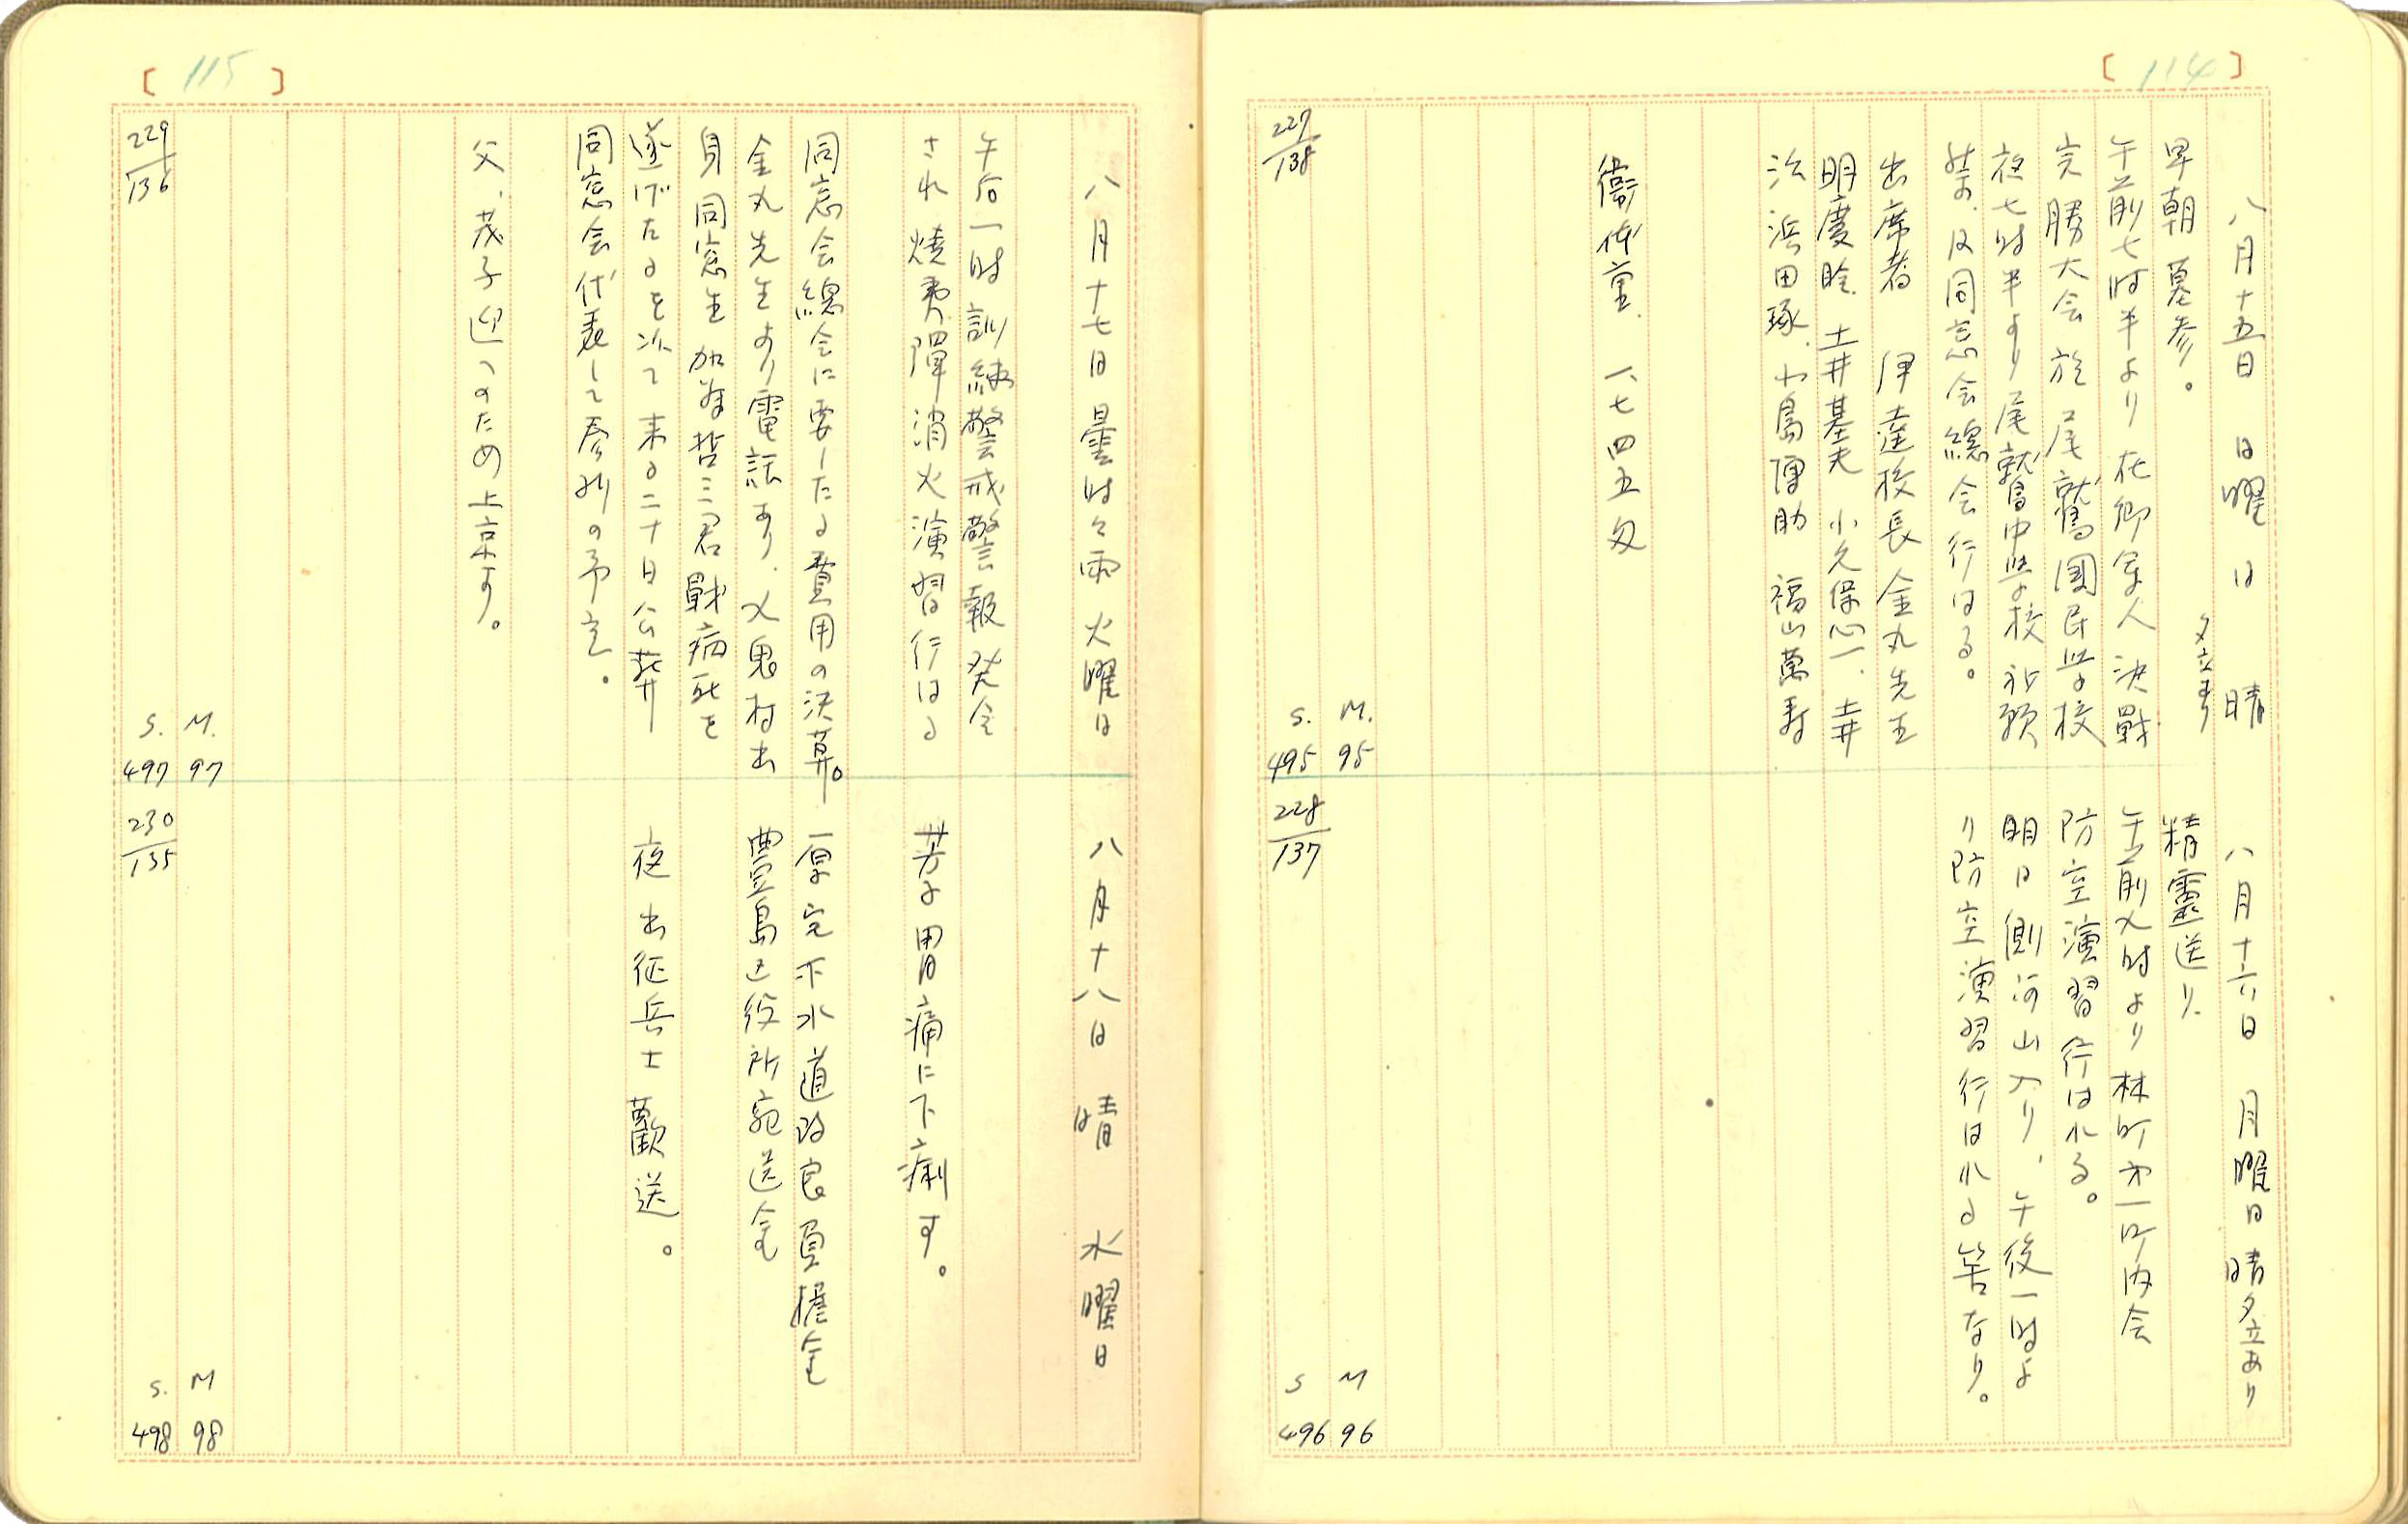 [ 114 ]
八月十五日 日曜日 晴
夕立あり
早朝墓参。
午前七時半より在郷軍人決戦
完勝大会 於尾鷲國民学校
夜七時半より尾鷲中学校祈願
祭、及同窓会總会行はる。
出席者 伊達校長 金丸先生
土井基夫 小久保心一、土井
浜田琢、小島 福山萬寿
一、七四五匁
227/138
S. 495
M. 95
八月十六日 月曜日 晴夕立あり
精霊送り、
午前八時より林町第一町内会
防空演習行はれる。
明日側河山入り、午後一時よ
り防空演習行はれる筈なり。
228/137
S 496
M 96
[ 115 ]
八月十七日 曇時々雨 火曜日
午后一時訓練警戒警報発令
され焼夷弾消火演習行はる
同窓会總会に要したる費用の決算。
金丸先生より電話あり、九鬼村出
身同窓生加藤哲三君戰病死を
遂げたるを以て来る二十日公葬
同窓会代表して参列の予定。
父、茂子迎へのため上京す。
229/136
S. 497
M. 97
八月十八日 晴 水曜日
芳子胃痛に下痢す。
一、厚完下水道改良負擔金
豊島区役所宛送金
夜出征兵士歡送。
230/135
S. 498
M 98